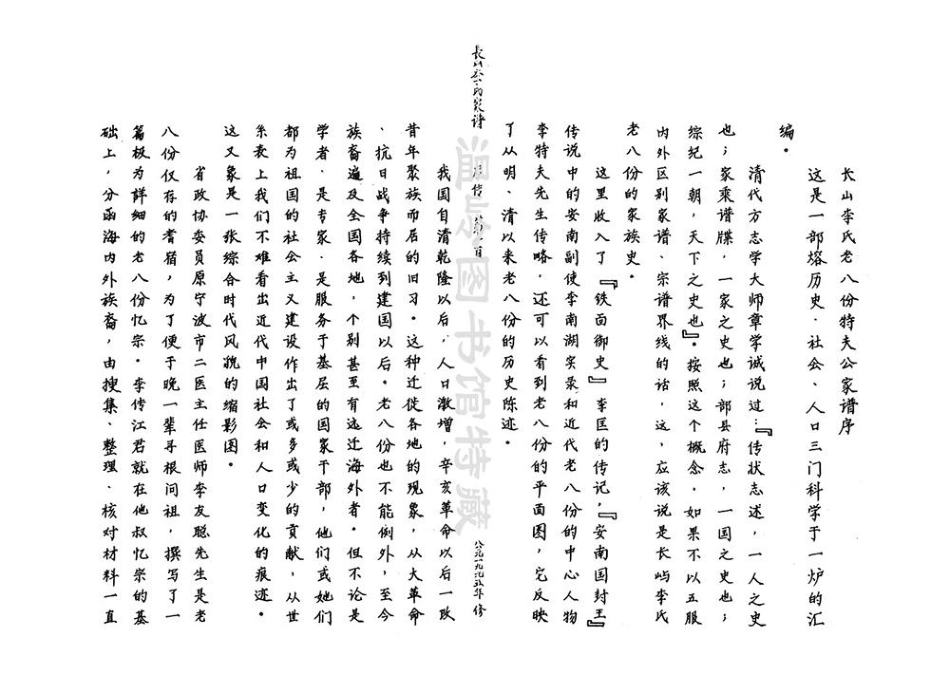 长山李氏老八份特夫公家谱序
这是一部熔历史、社会、人口三门科学于一炉的汇
编。
清代方志学大师章学诚说过：『传状志述，一人之史
也；家乘谱牒，一家之史也；部县府志，一国之史也；
综纪一朝，天下之史也』。按照这个概念，如果不以五服
内外区别家谱、宗谱界线的话，这，应该说是长屿李氏
老八份的家族史。
这里收入了『铁面御史』李匡的传记，『安南国封王』
传说中的安南副使李南湖实录和近代老八份的中心人物
李特夫先生传略，还可以看到老八份的平面图，它反映
了从明、清以来老八份的历史陈迹。
长山李氏家谱
第一百
公元一九九七年修
温岭图书馆特藏
我国自清乾隆以后，人口激增，辛亥革命以后一改
昔年聚族而居的旧习。这种近徙各地的现象，从大革命
、抗日战争持续到建国以后。老八份也不能例外，至今
族裔遍及全国各地，个别甚至有远迁海外者。但不论是
学者、是专家、是服务于基层的国家干部，他们或她们
都为祖国的社会主义建设作出了或多或少的贡献，从世
系表上我们不难看出近代中国社会和人口变化的痕迹。
这又象是一张综合时代风貌的缩影图。
省政协委员原宁波市二医主任医师李友聪先生是老
八份仅存的耆宿，为了便于晚一辈寻根问祖，撰写了一
篇极为详细的老八份忆宗。李传江君就在他叔忆宗的基
础上，分函海内外族裔，由搜集、整理、核对材料一直